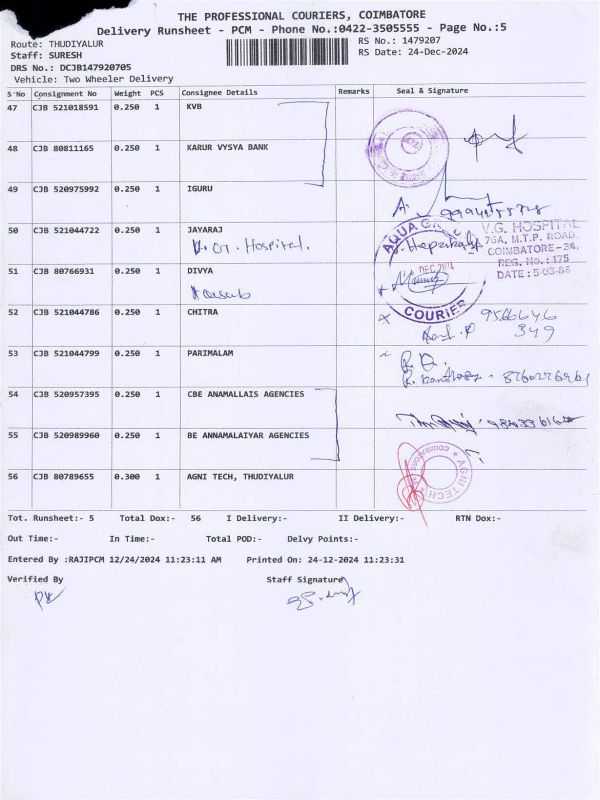 THE PROFESSIONAL COURIERS, COIMBATORE
Delivery Runsheet - PCM - Phone No.:0422-3505555 - Page No.:5
Route: THUDIYALUR
RS No.: 1479207
Staff: SURESH
RS Date: 24-Dec-2024
DRS No.: DCJB147920705
Vehicle: Two Wheeler Delivery
S'No Consignment No Weight PCS Consignee Details Remarks Seal & Signature
47 CJB 521018591 0.250 1 KVB
48 CJB 80811165 0.250 1 KARUR VYSYA BANK
49 CJB 520975992 0.250 1 IGURU
50 CJB 521044722 0.250 1 JAYARAJ
V. G. Hospital.
V.G. HOSPITAL
7GA, M.T.P. ROAD,
COIMBATORE-34,
REG. No.: 175
DATE: 5-03-86
51 CJB 80766931 0.250 1 DIVYA
AQUA
DEC
COURIER
52 CJB 521044786 0.250 1 CHITRA
9566646
349
53 CJB 521044799 0.250 1 PARIMALAM
54 CJB 520957395 0.250 1 CBE ANAMALLAIS AGENCIES
55 CJB 520989960 0.250 1 BE ANNAMALAIYAR AGENCIES
56 CJB 80789655 0.300 1 AGNI TECH, THUDIYALUR
AGNI TECH
COIMBATORE
Tot. Runsheet:- 5 Total Dox:- 56 I Delivery:- II Delivery:- RTN Dox:-
Out Time:- In Time:- Total POD:- Delvy Points:-
Entered By :RAJIPCM 12/24/2024 11:23:11 AM Printed On: 24-12-2024 11:23:31
Verified By Staff Signature